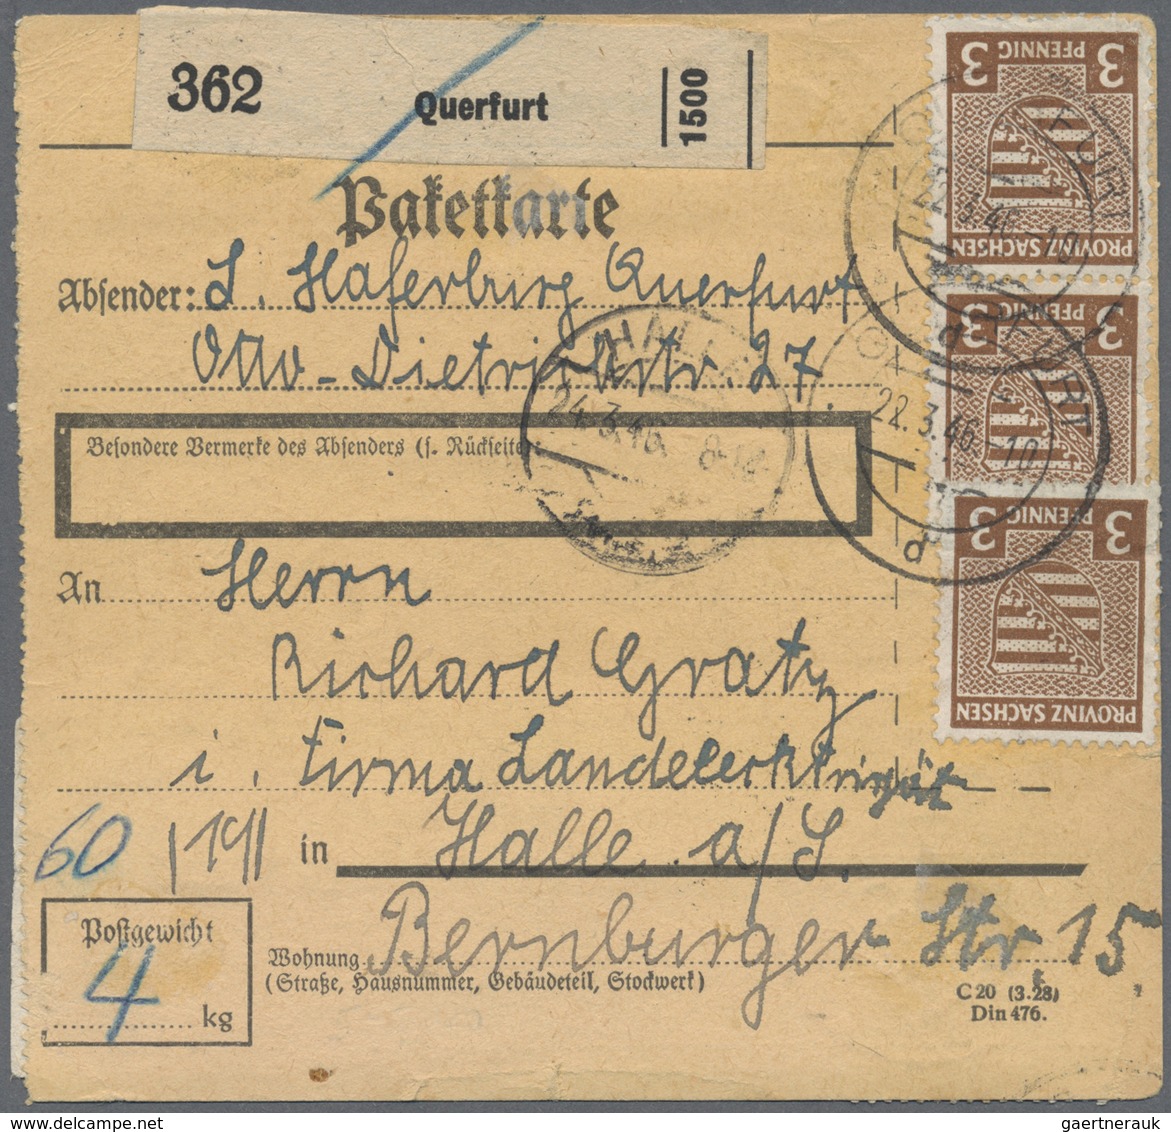 362 Querfurt 1500
Paketkarte
Absender: L. Haferburg Querfurt
Otto-Dietrichstr. 27
Besondere Vermerke des Absenders (s. Rückseite)
An Herrn
Richard Gratz
i. Firma Landelektrizität
60 in Halle a/S.
Postgewicht
4 kg
Wohnung Bernburger Str 15
(Straße, Hausnummer, Gebäudeteil, Stockwerk)
C 20 (3.28)
Din 476.
3 PFENNIG 3
PROVINZ SACHSEN
3 3
PFENNIG
3 PFENNIG 3
PROVINZ SACHSEN
QUERFURT
22.3.46.-10
d
QUERFURT
22.3.46.-10
d
HALLE
24.3.46. 8-14
www.delcampe.net
gaertnerauk